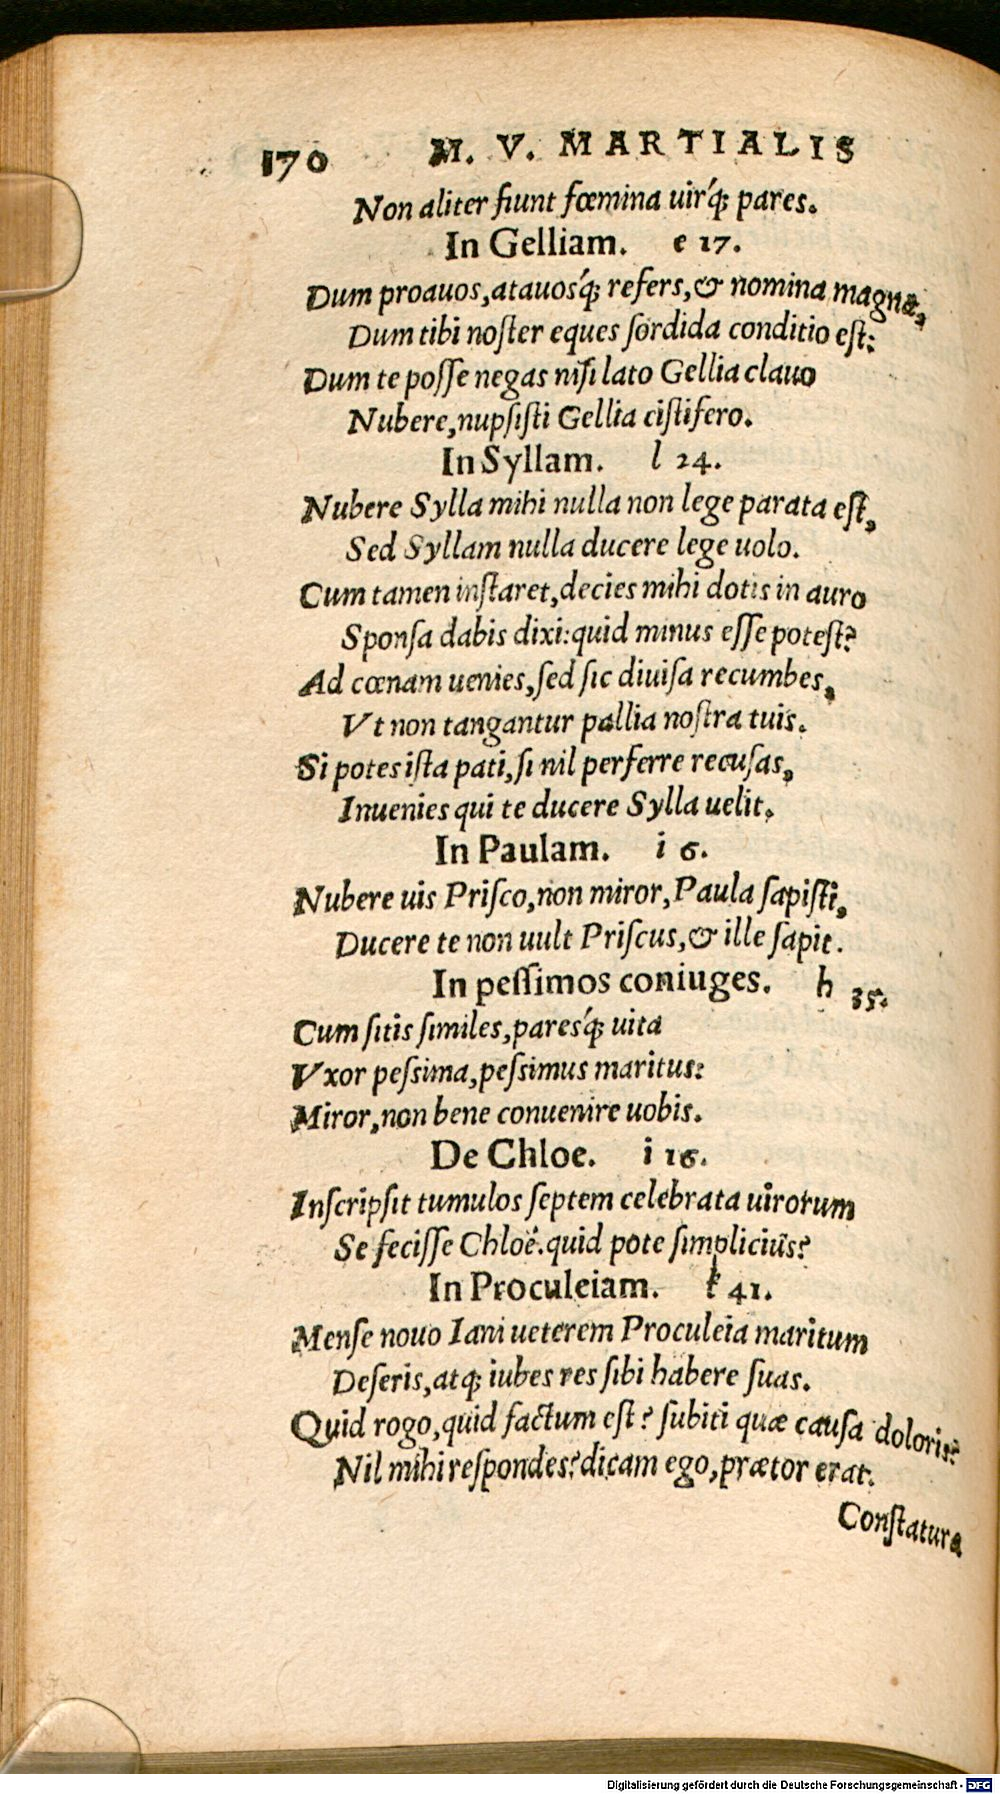 170 M. V. MARTIALIS
Non aliter fiunt fœmina uirq́; pares.
In Gelliam. e 17.
Dum proauos, atauosq́; refers, & nomina magna,
Dum tibi noſter eques ſordida conditio eſt:
Dum te poſſe negas niſi lato Gellia clauo
Nubere, nupſiſti Gellia ciſtifero.
In Syllam. l 24.
Nubere Sylla mihi nulla non lege parata eſt,
Sed Syllam nulla ducere lege uolo.
Cum tamen inſtaret, decies mihi dotis in auro
Sponſa dabis dixi: quid minus eſſe poteſt?
Ad cœnam uenies, ſed ſic diuiſa recumbes,
Vt non tangantur pallia noſtra tuis.
Si potes iſta pati, ſi nil perferre recuſas,
Inuenies qui te ducere Sylla uelit.
In Paulam. i 6.
Nubere uis Priſco, non miror, Paula ſapiſti,
Ducere te non uult Priſcus, & ille ſapit.
In peſſimos coniuges. h 35.
Cum ſitis ſimiles, paresq́; uita
Vxor peſsima, peſsimus maritus:
Miror, non bene conuenire uobis.
De Chloe. i 16.
Inſcripſit tumulos ſeptem celebrata uirorum
Se feciſſe Chloë. quid pote ſimplicius?
In Proculeiam. k 41.
Menſe nouo Iani ueterem Proculeia maritum
Deſeris, atq; iubes res ſibi habere ſuas.
Quid rogo, quid factum eſt? ſubiti quæ cauſa doloris?
Nil mihi reſpondes? dicam ego, prætor erat.
Conſtatura
Digitalisierung gefördert durch die Deutsche Forschungsgemeinschaft - DFG